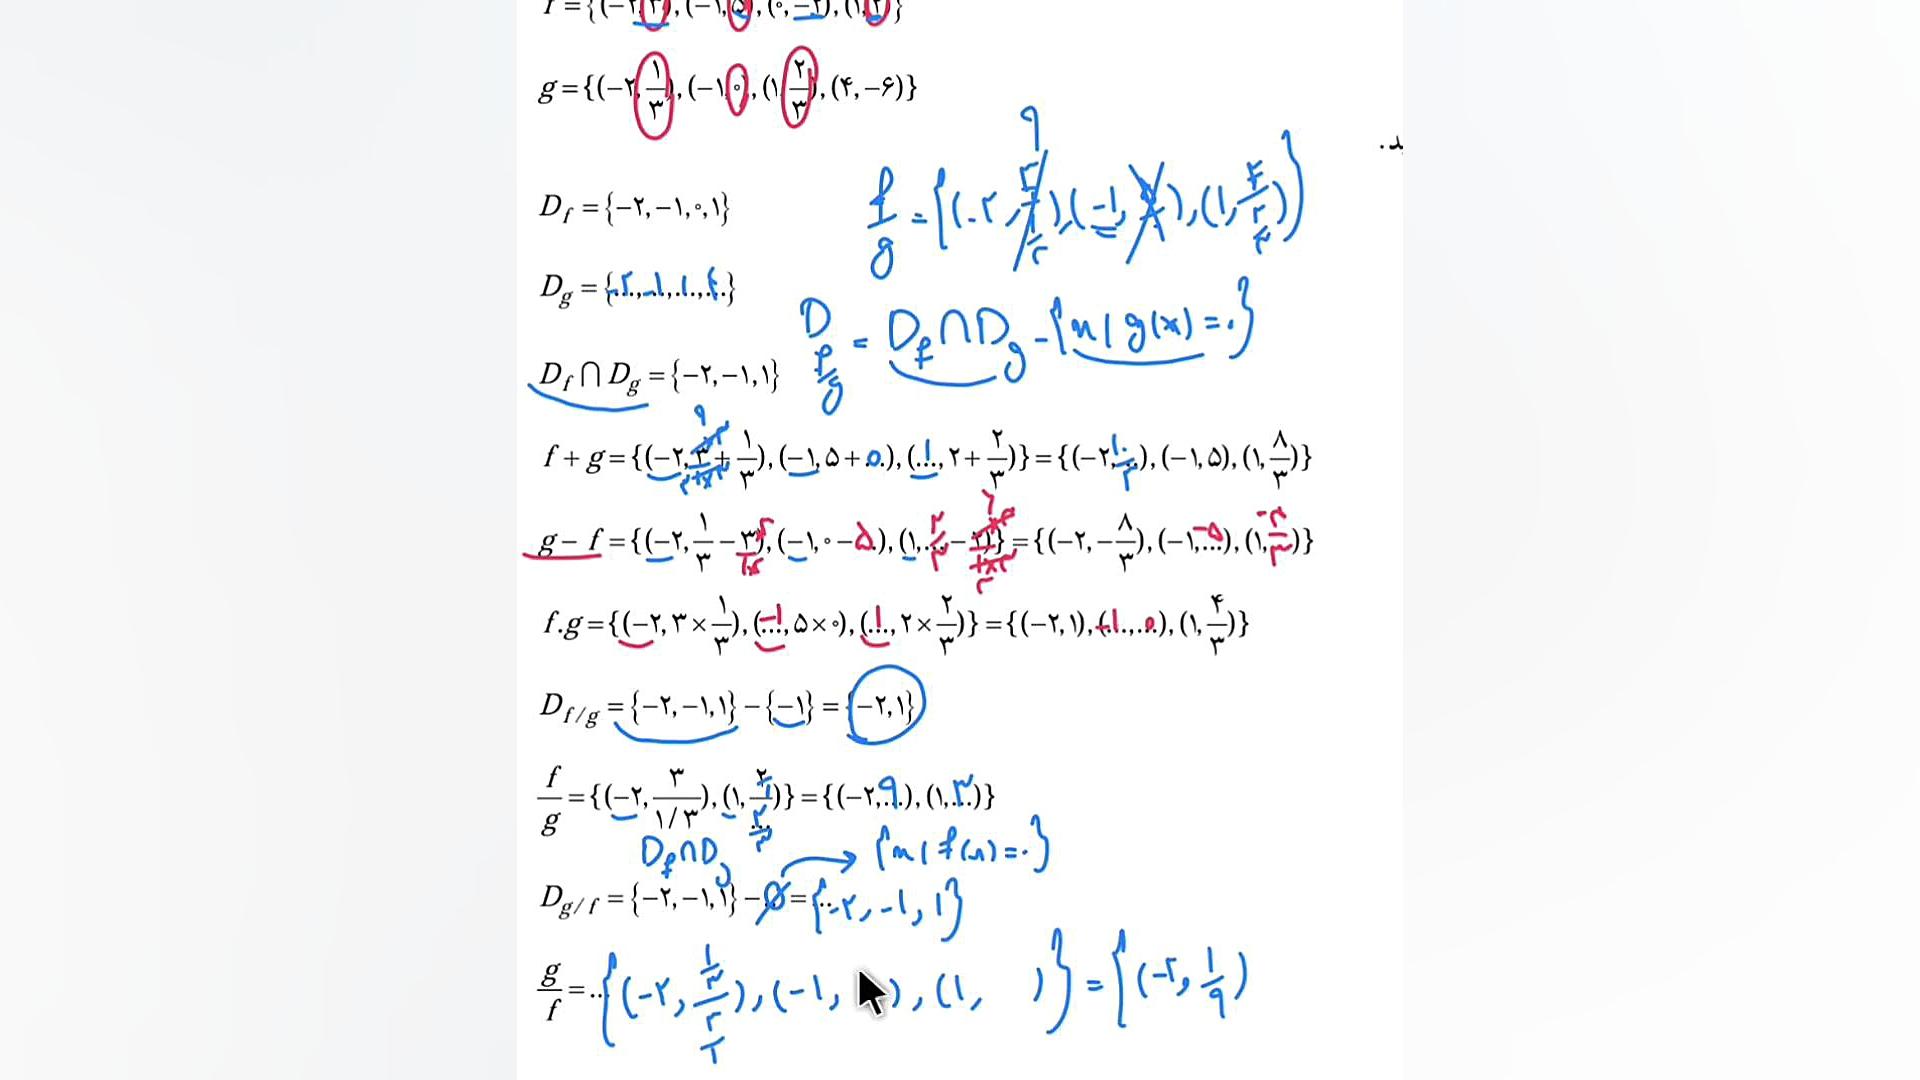 f = {(−۲,۳),(−۱,۵),(۰,−۲),(۱,۲)}
g = {(−۲,۱/۳),(−۱,۰),(۱,۲/۳),(۴,−۶)}
د.
D_f = {−۲,−۱,۰,۱}
f/g = {(−۲, ۳/(۱/۳)),(−۱, ),(۱, )} ۹
D_g = {−۲,−۱,۱,۴}
D_f/g = D_f ∩ D_g − {x | g(x) = ۰}
D_f ∩ D_g = {−۲,−۱,۱}
f + g = {(−۲,۳ + ۱/۳),(−۱,۵+۰),(۱,۲+ ۲/۳)} = {(−۲,۱۰/۳),(−۱,۵),(۱,۸/۳)}
g − f = {(−۲,۱/۳ − ۳),(−۱,۰−۵),(۱,۲/۳ − ۲)} = {(−۲,−۸/۳),(−۱,−۵),(۱,−۴/۳)}
f.g = {(−۲,۳×۱/۳),(−۱,۵×۰),(۱,۲×۲/۳)} = {(−۲,۱),(−۱,۰),(۱,۴/۳)}
D_f/g = {−۲,−۱,۱} − {−۱} = {−۲,۱}
f/g = {(−۲, ۳/(۱/۳)),(۱, ۲/(۲/۳))} = {(−۲,۹),(۱,۳)}
D_f ∩ D_g {x | f(x) = ۰}
D_g/f = {−۲,−۱,۱} − ∅ = {−۲,−۱,۱}
g/f = {(−۲, (۱/۳)/۳),(−۱, ),(۱, )} = {(−۲,۱/۹)